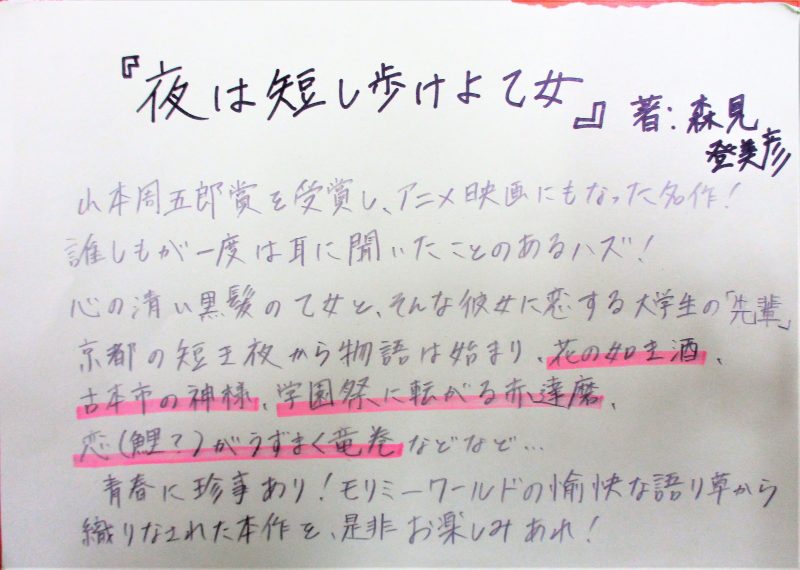 『夜は短し歩けよ乙女』 著:森見
登美彦
山本周五郎賞を受賞し、アニメ映画にもなった名作!
誰しもが一度は耳に聞いたことのあるハズ!
心の清い黒髪の乙女と、そんな彼女に恋する大学生の「先輩」
京都の短き夜から物語は始まり、花の如き酒、
古本市の神様、学園祭に転がる赤達磨、
恋(鯉?)がうずまく竜巻などなど…
青春に珍事あり!モリミーワールドの愉快な語り草から
織りなされた本作を、是非お楽しみあれ!